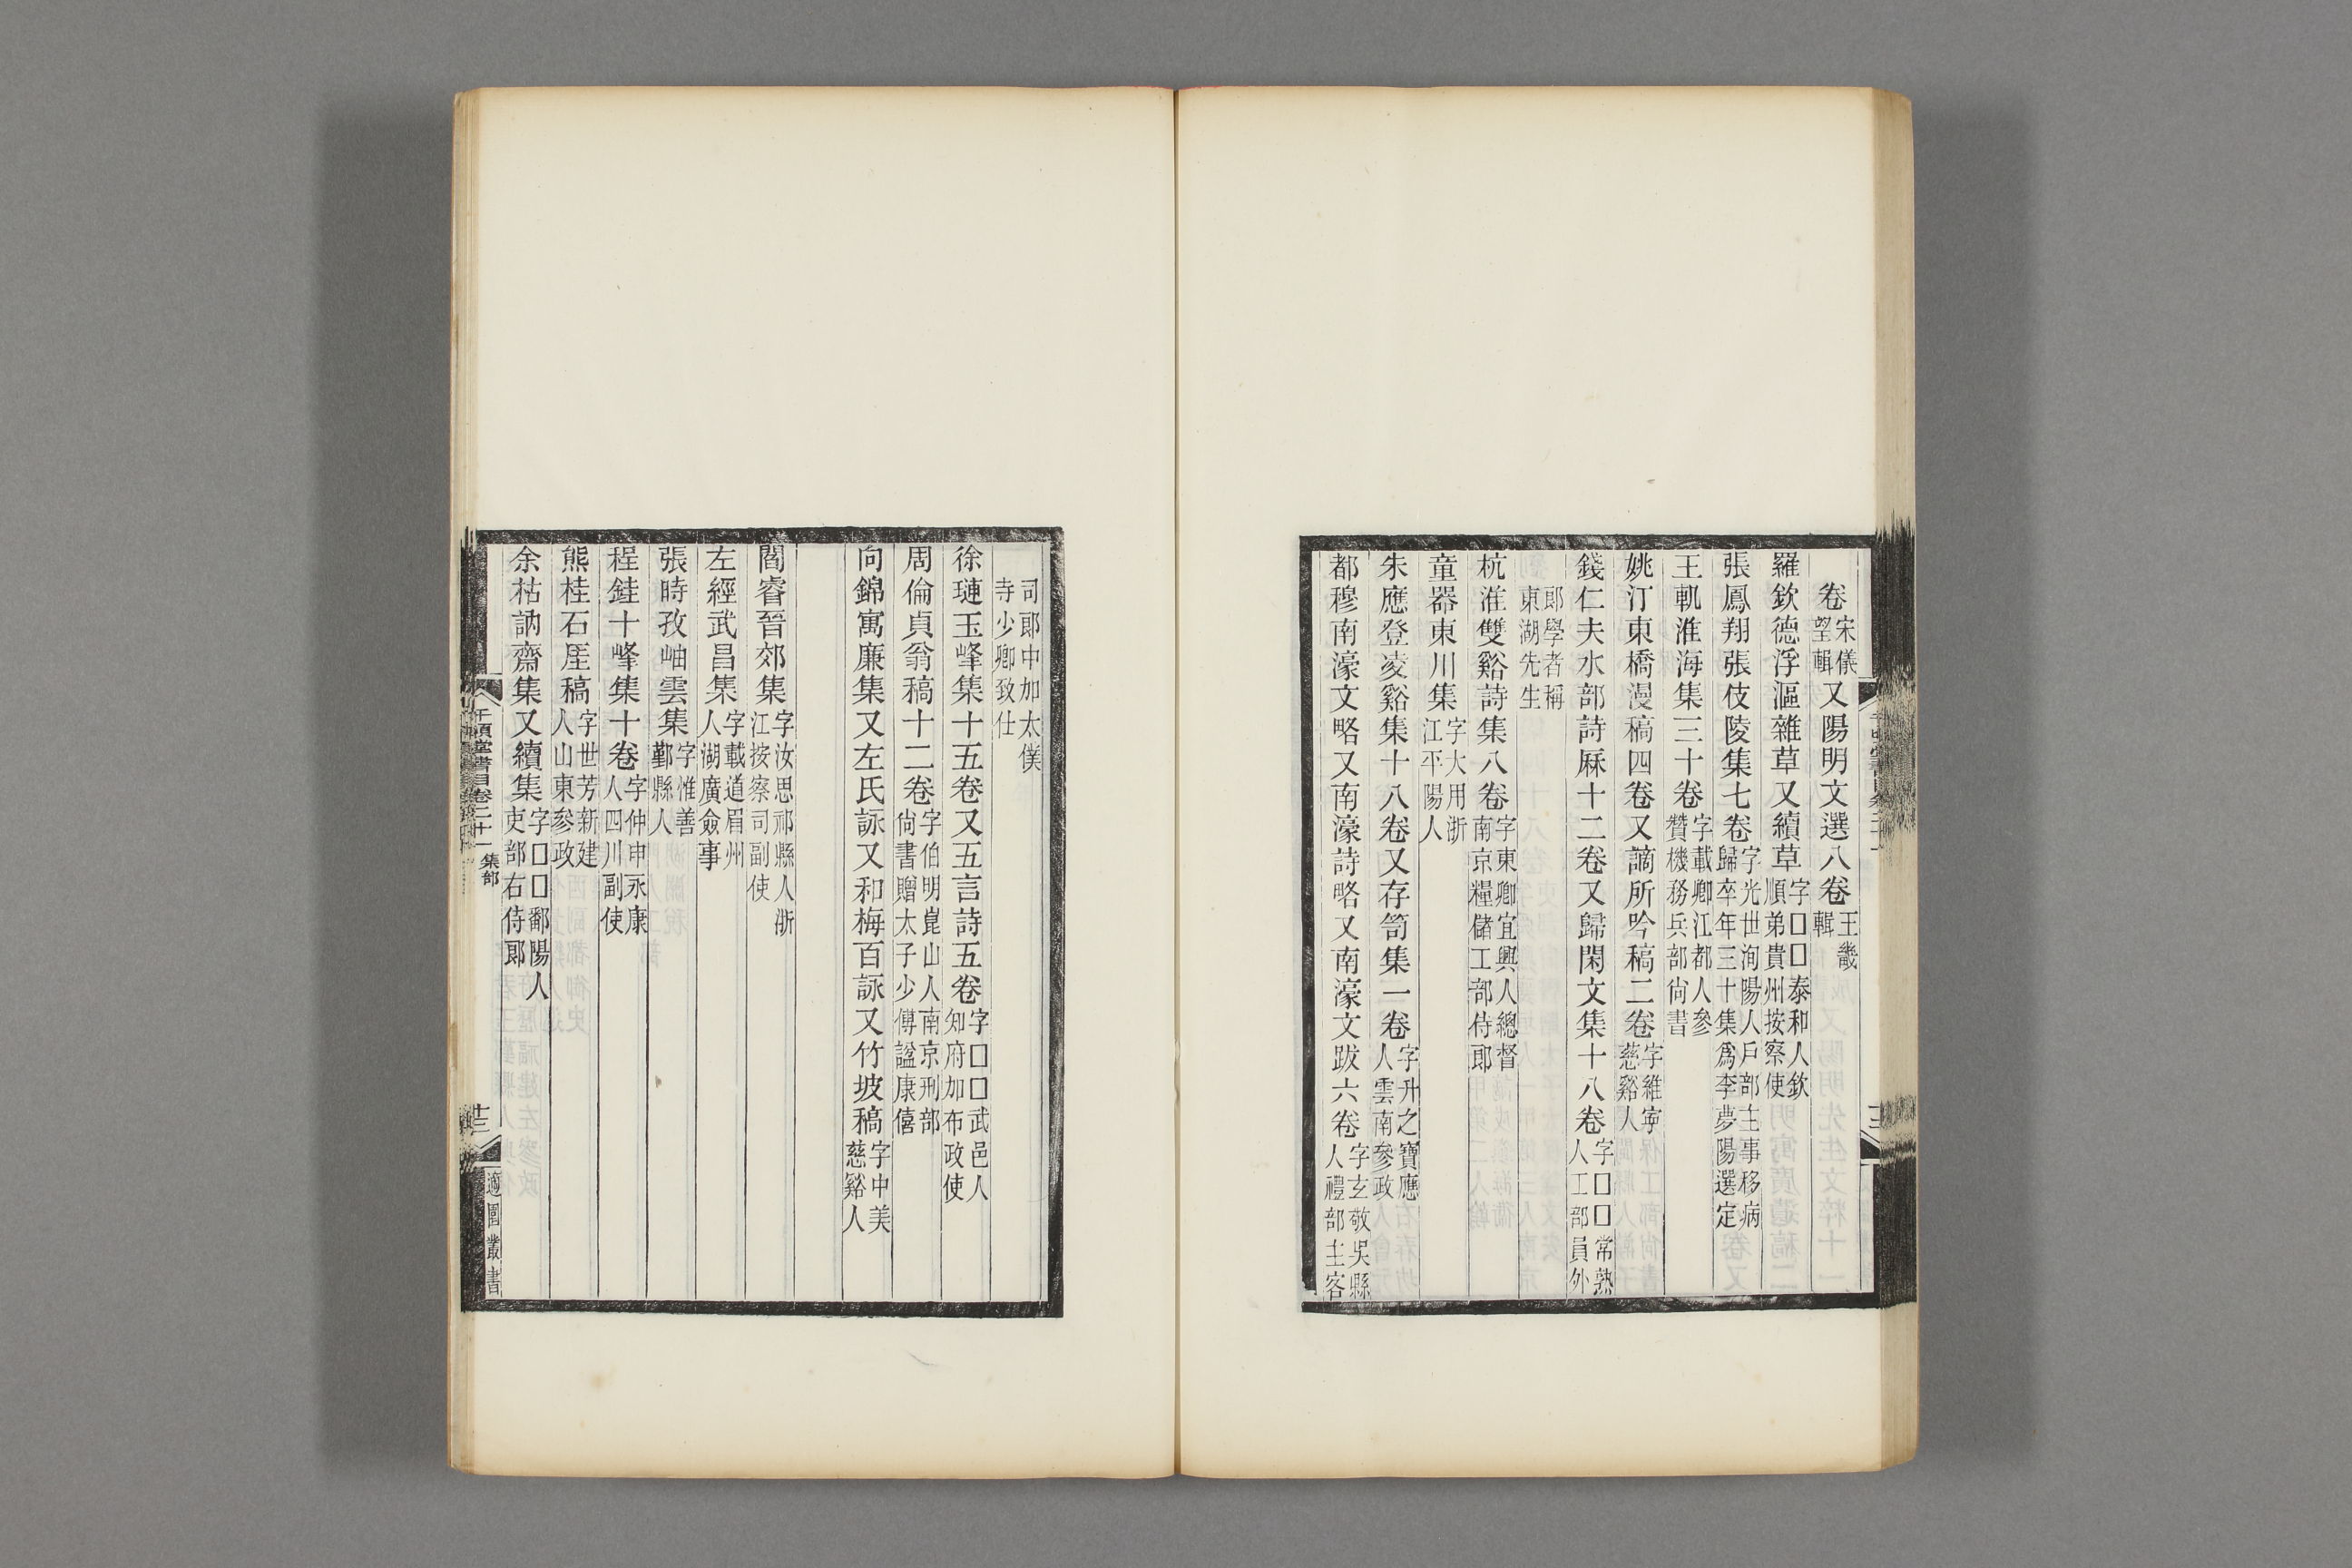 卷宋儀望輯又陽明文選八卷王畿輯
羅欽德浮漚雜草又續草字□□泰和人欽順弟貴州按察使
張鳳翔張伎陵集七卷字光世洵陽人戶部主事移病歸卒年三十集爲李夢陽選定
王軏淮海集三十卷字載卿江都人參贊機務兵部尙書
姚汀東橋漫稿四卷又謫所吟稿二卷字維寧慈谿人
錢仁夫水部詩厤十二卷又歸閑文集十八卷字□□常熟人工部員外
郎學者稱東湖先生
杭淮雙谿詩集八卷字東卿宜興人總督南京糧儲工部侍郎
童器東川集字大用浙江平陽人
朱應登凌谿集十八卷又存笥集一卷字升之寶應人雲南參政
都穆南濠文略又南濠詩略又南濠文跋六卷字玄敬吳縣人禮部主客
司郎中加太僕寺少卿致仕
徐璉玉峰集十五卷又五言詩五卷字□□武邑人知府加布政使
周倫貞翁稿十二卷字伯明崑山人南京刑部尙書贈太子少傅諡康僖
向錦寓廉集又左氏詠又和梅百詠又竹坡稿字中美慈谿人
閻睿晉郊集字汝思祁縣人浙江按察司副使
左經武昌集字載道眉州人湖廣僉事
張時孜岫雲集字惟善鄞縣人
程鍷十峰集十卷字仲申永康人四川副使
熊桂石厓稿字世芳新建人山東參政
余祜訥齋集又續集字□□鄱陽人吏部右侍郎
千頃堂書目卷二十一 集部
十三
適園叢書